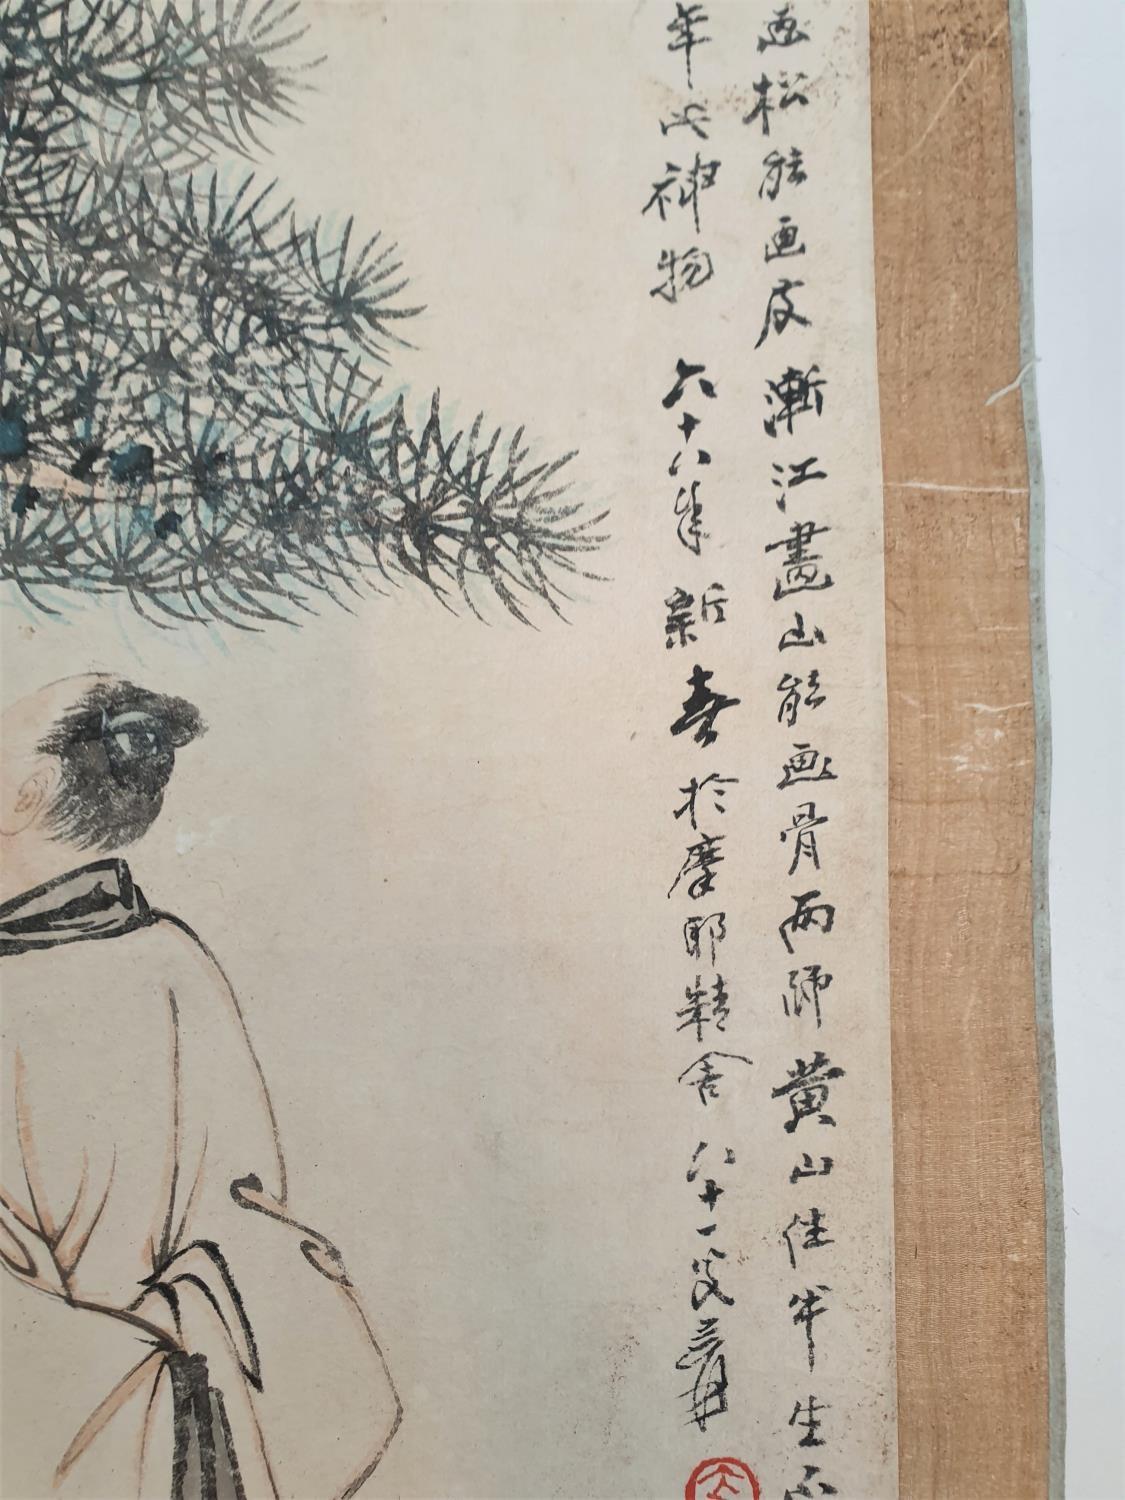 画松能画皮漸江畫山能画骨兩師黄山住半生不
年此神物 六十八年新春於摩耶精舍 八十一叟爰